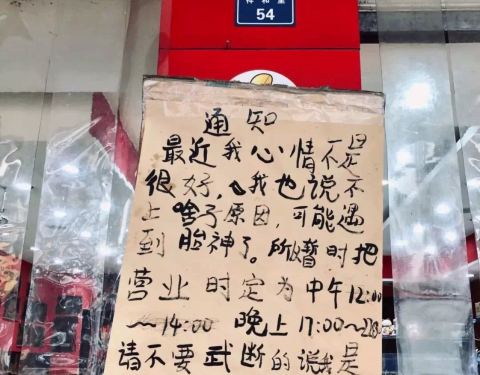 祥和里
54
通知
最近我心情不是
很好，我也说不
上啥子原因，可能遇
到胎神了。所以暂时把
营业时定为中午12:00
～14:00 晚上17:00～
请不要武断的说我是